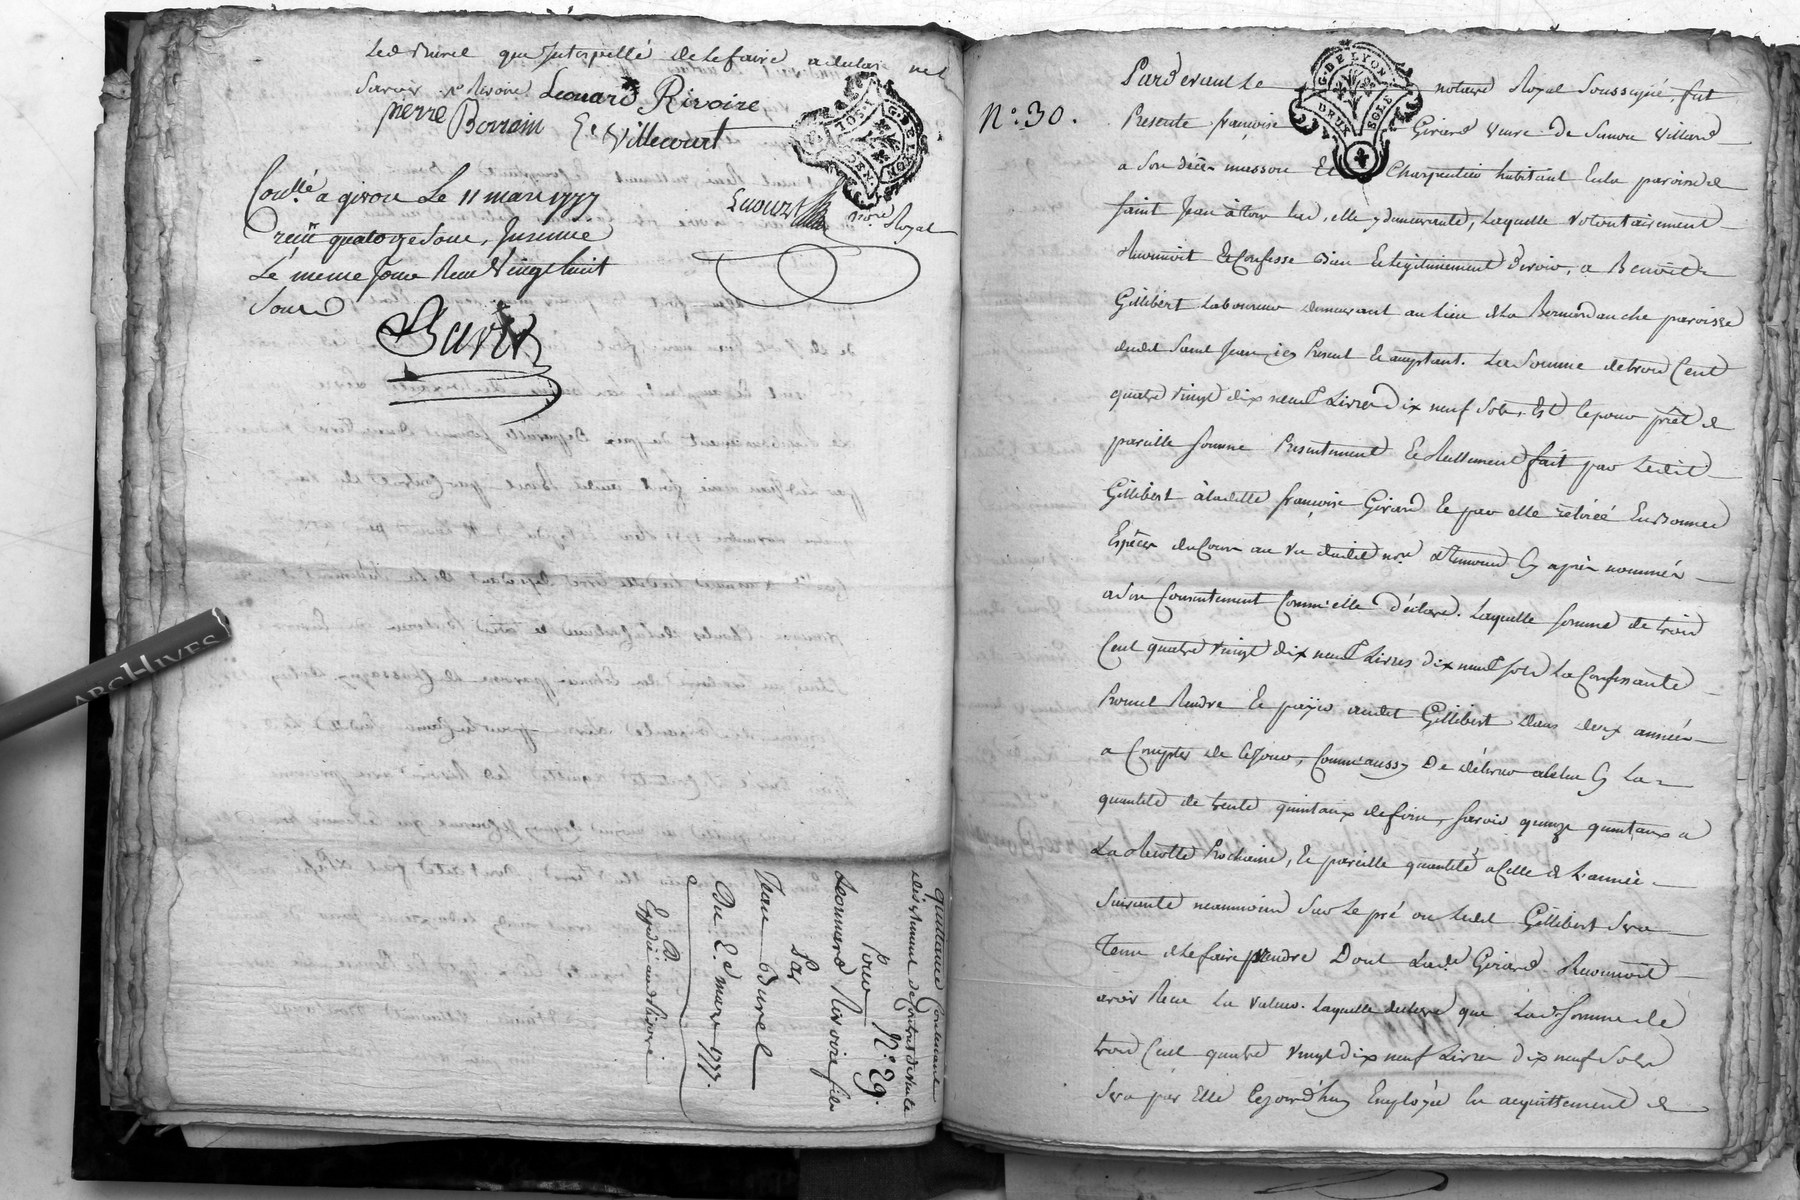 Led Burel que Interpellé de le faire a declaré ne
Savoir Leonard Rivoire
pierre Borrain Villecourt
G. DE LYON
Coullé a givor Le 11 mars 1777
notre Royal
reçu quatorze sous, Insinué
Le meme Jour Reçu Vingt huit
Sous
quittance Contenant
desistement de Contrat de vente
Pour N.º 29.
Leonnard Rivoire fils
Par
Jean Burel
Du 2.e mars 1777.
Expedié aud Rivoire
ARCHIVES
N.º 30.
G. DE LYON
Pardevant Le notaire Royal Soussigné, fut
Presente françoise Girard veuve de Simon Villard
a Son décès masson Et Charpentier habitant En la paroisse de
Saint Jean à Tour las, elle y demeurante, Laquelle volontairement
Reconnoit Et Confesse bien Et legitimement Devoir, a Benoit
Gillibert Laboureur demeurant au Lieu de la paroisse
dudit Saint Jean icy Present Et acceptant. La Somme de trois Cent
quatre vingt dix neuf Livres Dix neuf Sols, Et Ce pour prêt de
pareille Somme Presentement Et Reellement fait par Ledit
Gillibert à laditte françoise Girard Et par elle retirée En Bonnes
Espèces du Cour au vu dudit nore & temoins Cy après nommés
a Son Contentement Comme elle Déclare. Laquelle Somme de trois
Cent quatre Vingt dix neuf Livres dix neuf Sols La Confessante
Promet Rendre Et païer audit Gillibert Dans deux années
a Compter de Ce Jour, Comm'aussy De délivrer a La
quantité de trente quintaux de foin, Savoir quinze quintaux a
La Recolte Prochaine, Et pareille quantité a Celle de L'année
Suivante neanmoins Sur Le pré ou Ledit Gillibert Sera
Tenu de le faire prendre Dont Lade Girard Reconnoit
avoir Reçu La valeur. Laquelle declare que Lad Somme de
trois Cent quatre Vingt dix neuf Livres Dix neuf Sols
Sera par Elle Cejourd'huy Employée En acquittement de